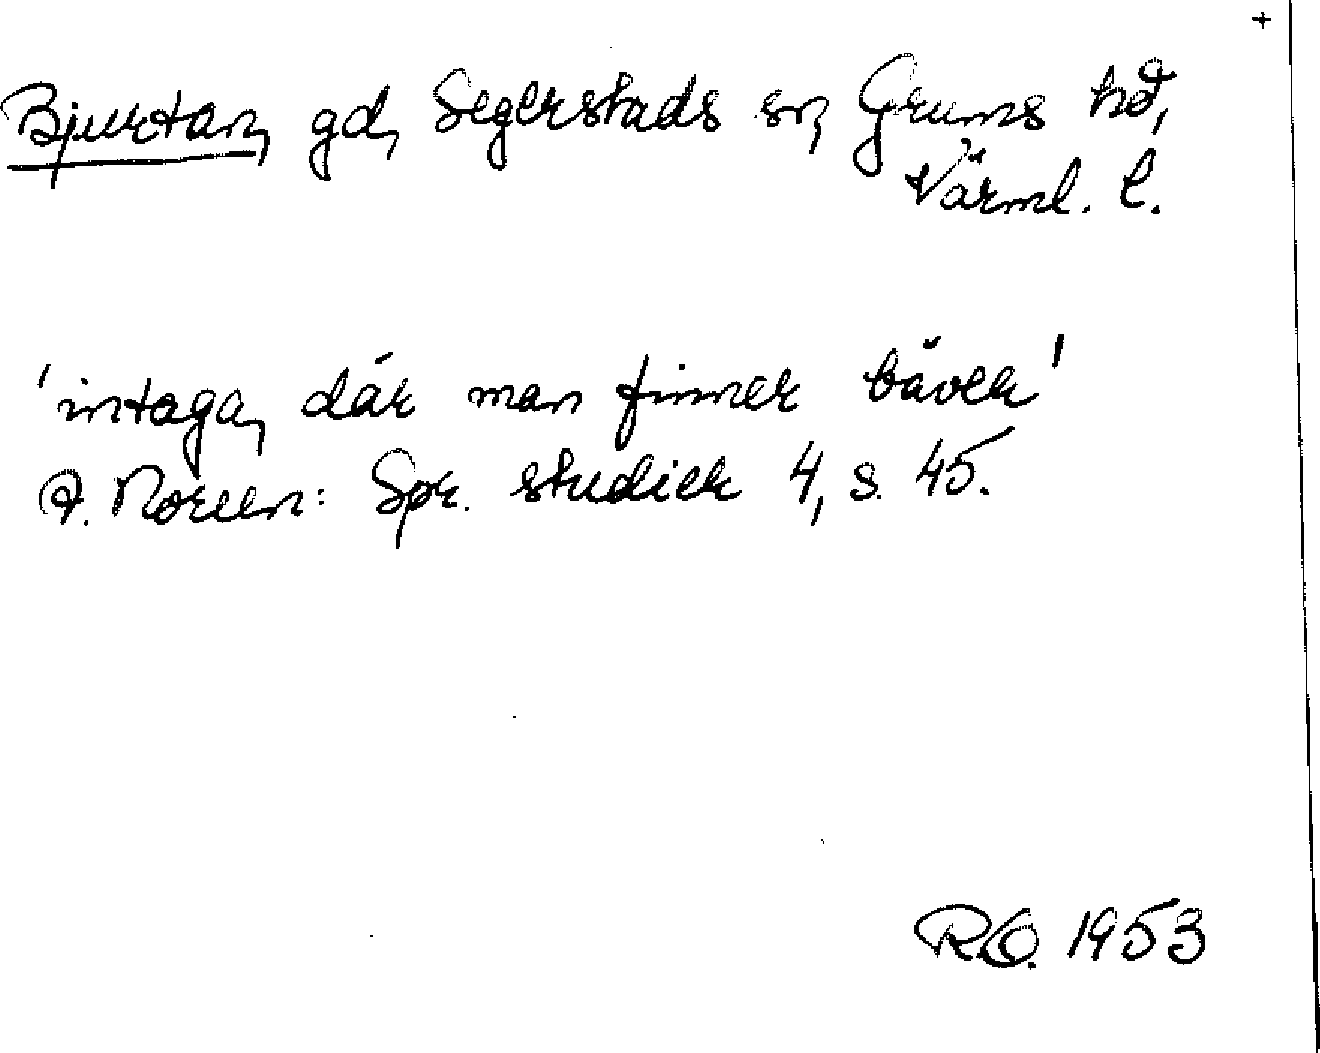 +
Bjurtan, gd, Segerstads sn, Grums hd,
Värml. l.
'intaga, där man finner bäver'
A. Noreen: Spr. studier 4, s. 45.
R.O. 1953